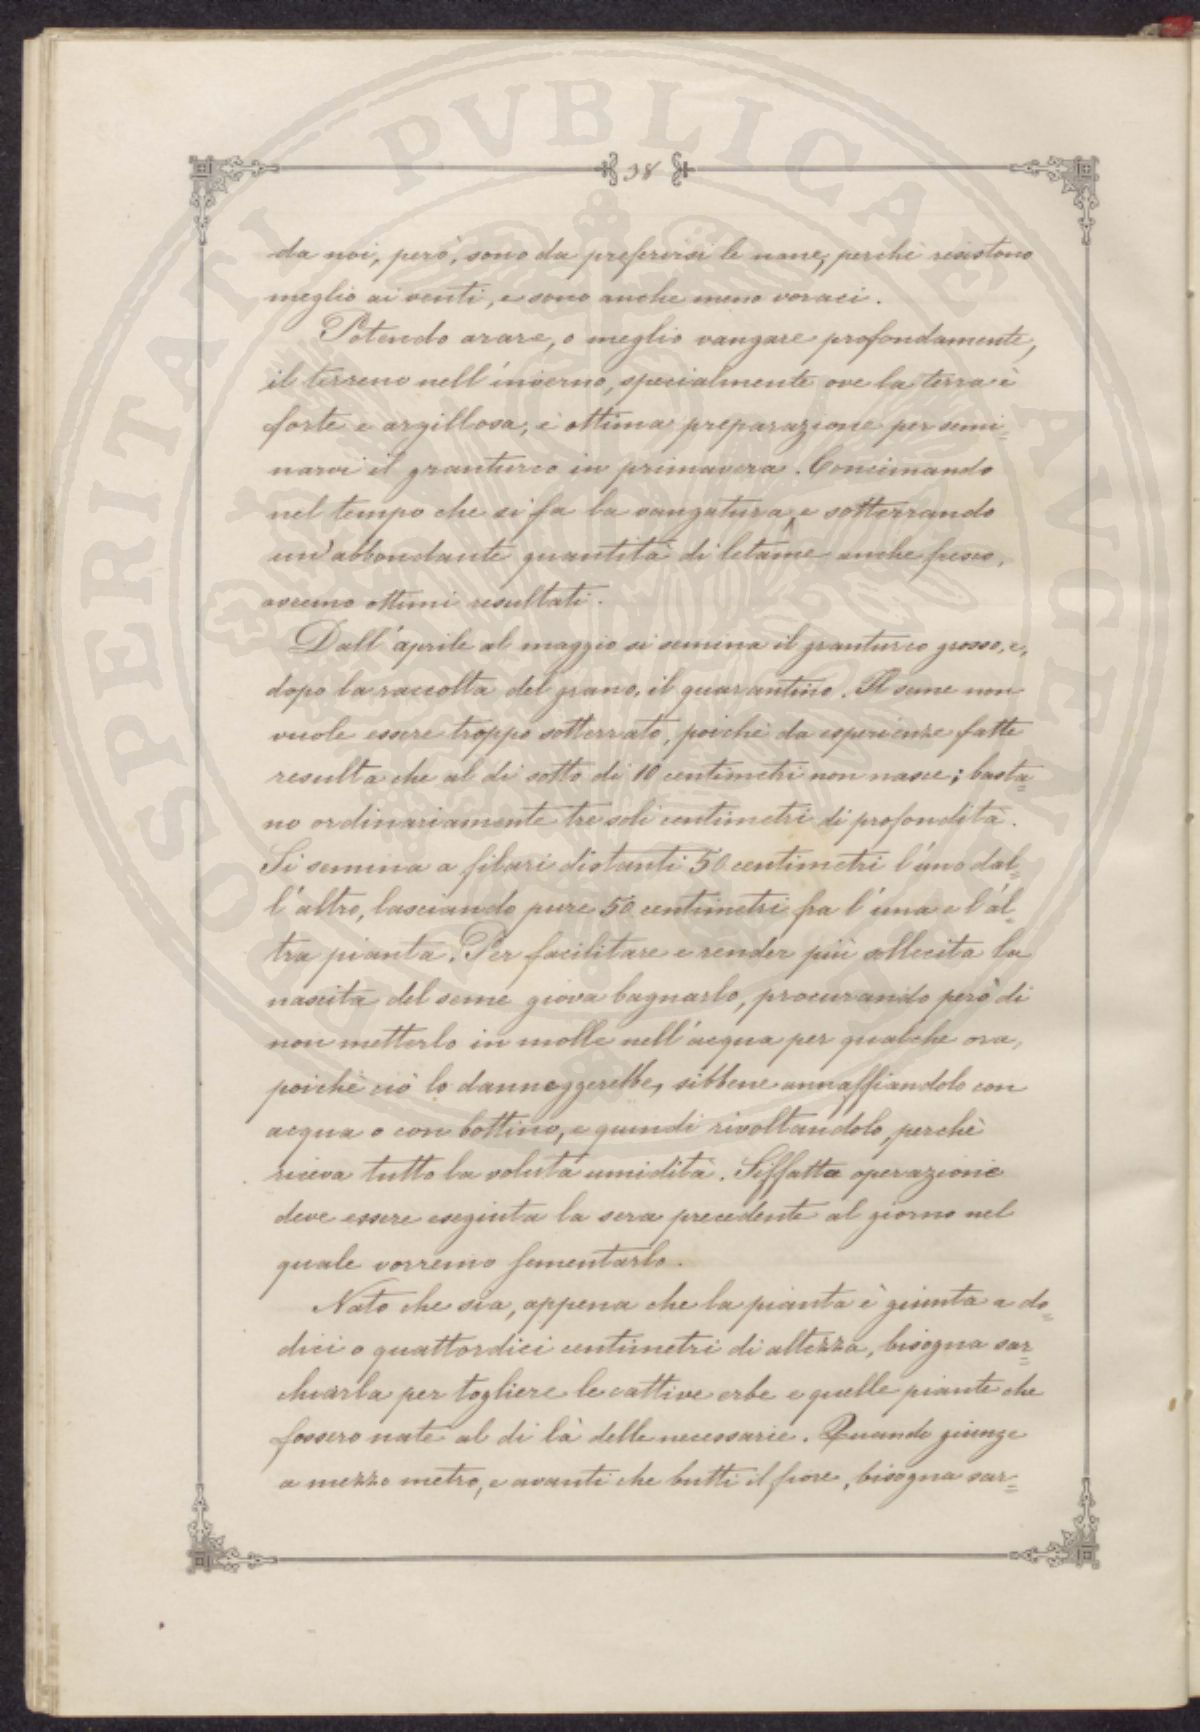 38
da noi, però, sono da preferirsi le nane, perchè resistono
meglio ai venti, e sono anche meno voraci.
Potendo arare, o meglio vangare profondamente,
il terreno nell'inverno, specialmente ove la terra è
forte e argillosa, è ottima preparazione per semi=
narvi il granturco in primavera. Concimando
nel tempo che si fa la vangatura, e sotterrando
un'abbondante quantità di letame anche fresco,
avremo ottimi resultati.
Dall'aprile al maggio si semina il granturco grosso, e,
dopo la raccolta del grano, il quarantino. Il seme non
vuole essere troppo sotterrato, poichè da esperienze fatte
resulta che al di sotto di 10 centimetri non nasce; basta=
no ordinariamente tre soli centimetri di profondità.
Si semina a filari distanti 50 centimetri l'uno dal=
l'altro, lasciando pure 50 centimetri fra l'una e l'al=
tra pianta. Per facilitare e render più sollecita la
nascita del seme giova bagnarlo, procurando però di
non metterlo in molle nell'acqua per qualche ora,
poichè ciò lo danneggerebbe, sibbene annaffiandolo con
acqua o con bottino, e quindi rivoltandolo, perchè
riceva tutto la voluta umidità. Siffatta operazione
deve essere eseguita la sera precedente al giorno nel
quale vorremo sementarlo.
Nato che sia, appena che la pianta è giunta a do=
dici o quattordici centimetri di altezza, bisogna sar=
chiarla per togliere le cattive erbe e quelle piante che
fossero nate al di là delle necessarie. Quando giunge
a mezzo metro, e avanti che butti il fiore, bisogna sar=
PROSPERITATI PVBLICAE AVGENDAE